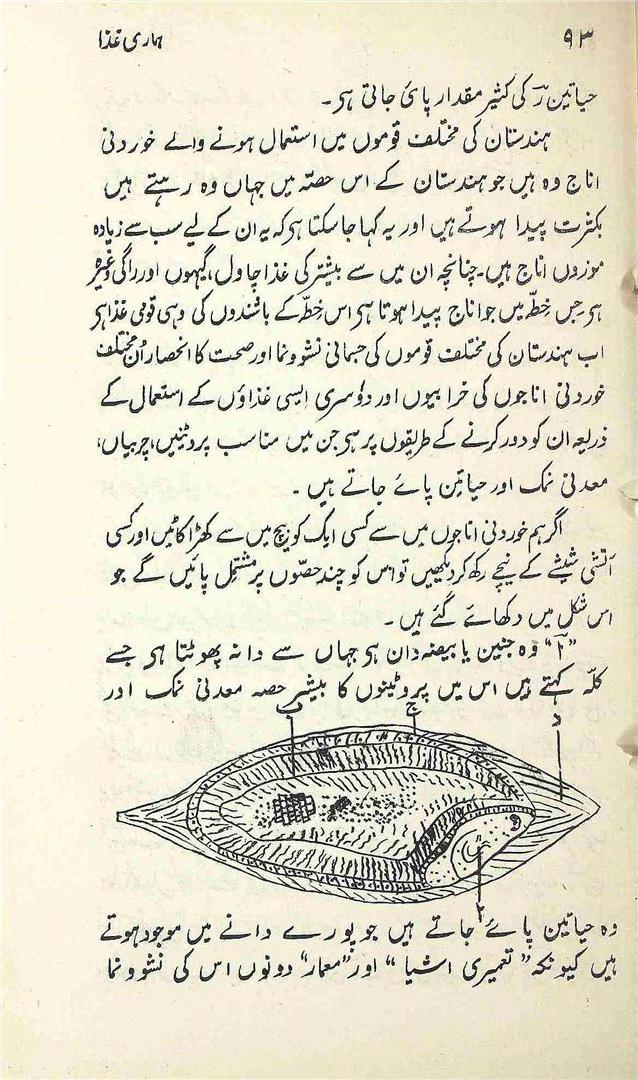 ۹۳
ہماری غذا
حیاتین رؔ کی کثیر مقدار پائ جاتی ہی۔
ہندستان کی مختلف قوموں میں استعمال ہونے والے خوردنی
اناج وہ ہیں جو ہندستان کے اس حصّہ میں جہاں وہ رہتے ہیں
بکثرت پیدا ہوتے ہیں اور یہ کہا جا سکتا ہی کہ یہ ان کے لیے سب سے زیادہ
موزوں اناج ہیں۔ چنانچہ ان میں سے بیشتر کی غذا چاول، گیہوں اور راگی وغیرہ
ہی جس خطّہ میں جو اناج پیدا ہوتا ہی اس خطّہ کے باشندوں کی وہی قومی غذا ہی
اب ہندستان کی مختلف قوموں کی جسمانی نشو و نما اور صحت کا انحصار اُن مختلف
خوردنی اناجوں کی خرابیوں اور دوٗسری ایسی غذاؤں کے استعمال کے
ذریعہ ان کو دور کرنے کے طریقوں پر ہی جن میں مناسب پروٹینیں، چربیاں،
معدنی نمک اور حیاتین پائے جاتے ہیں۔
اگر ہم خوردنی اناجوں میں سے کسی ایک کو بیچ میں سے کھڑا کاٹیں اور کسی
آتشی شیشے کے نیچے رکھ کر دیکھیں تو اس کو چند حصّوں پر مشتمل پائیں گے جو
اس شکل میں دکھائے گئے ہیں۔
”آ“ وہ جنین یا بیضہ دان ہی جہاں سے دانہ پھوٹتا ہی جسے
کلّہ کہتے ہیں اس میں پروٹینوں کا بیشتر حصہ معدنی نمک اور
ب
ج
د
آ
وہ حیاتین پائے جاتے ہیں جو پورے دانے میں موجود ہوتے
ہیں کیونکہ ”تعمیری اشیا“ اور ”معمار“ دونوں اس کی نشو و نما